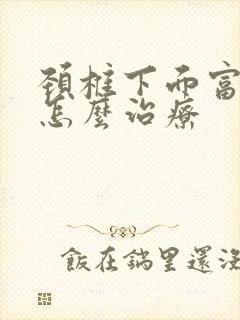 頚椎下面富
怎麼治療
飯在鍋里還沒